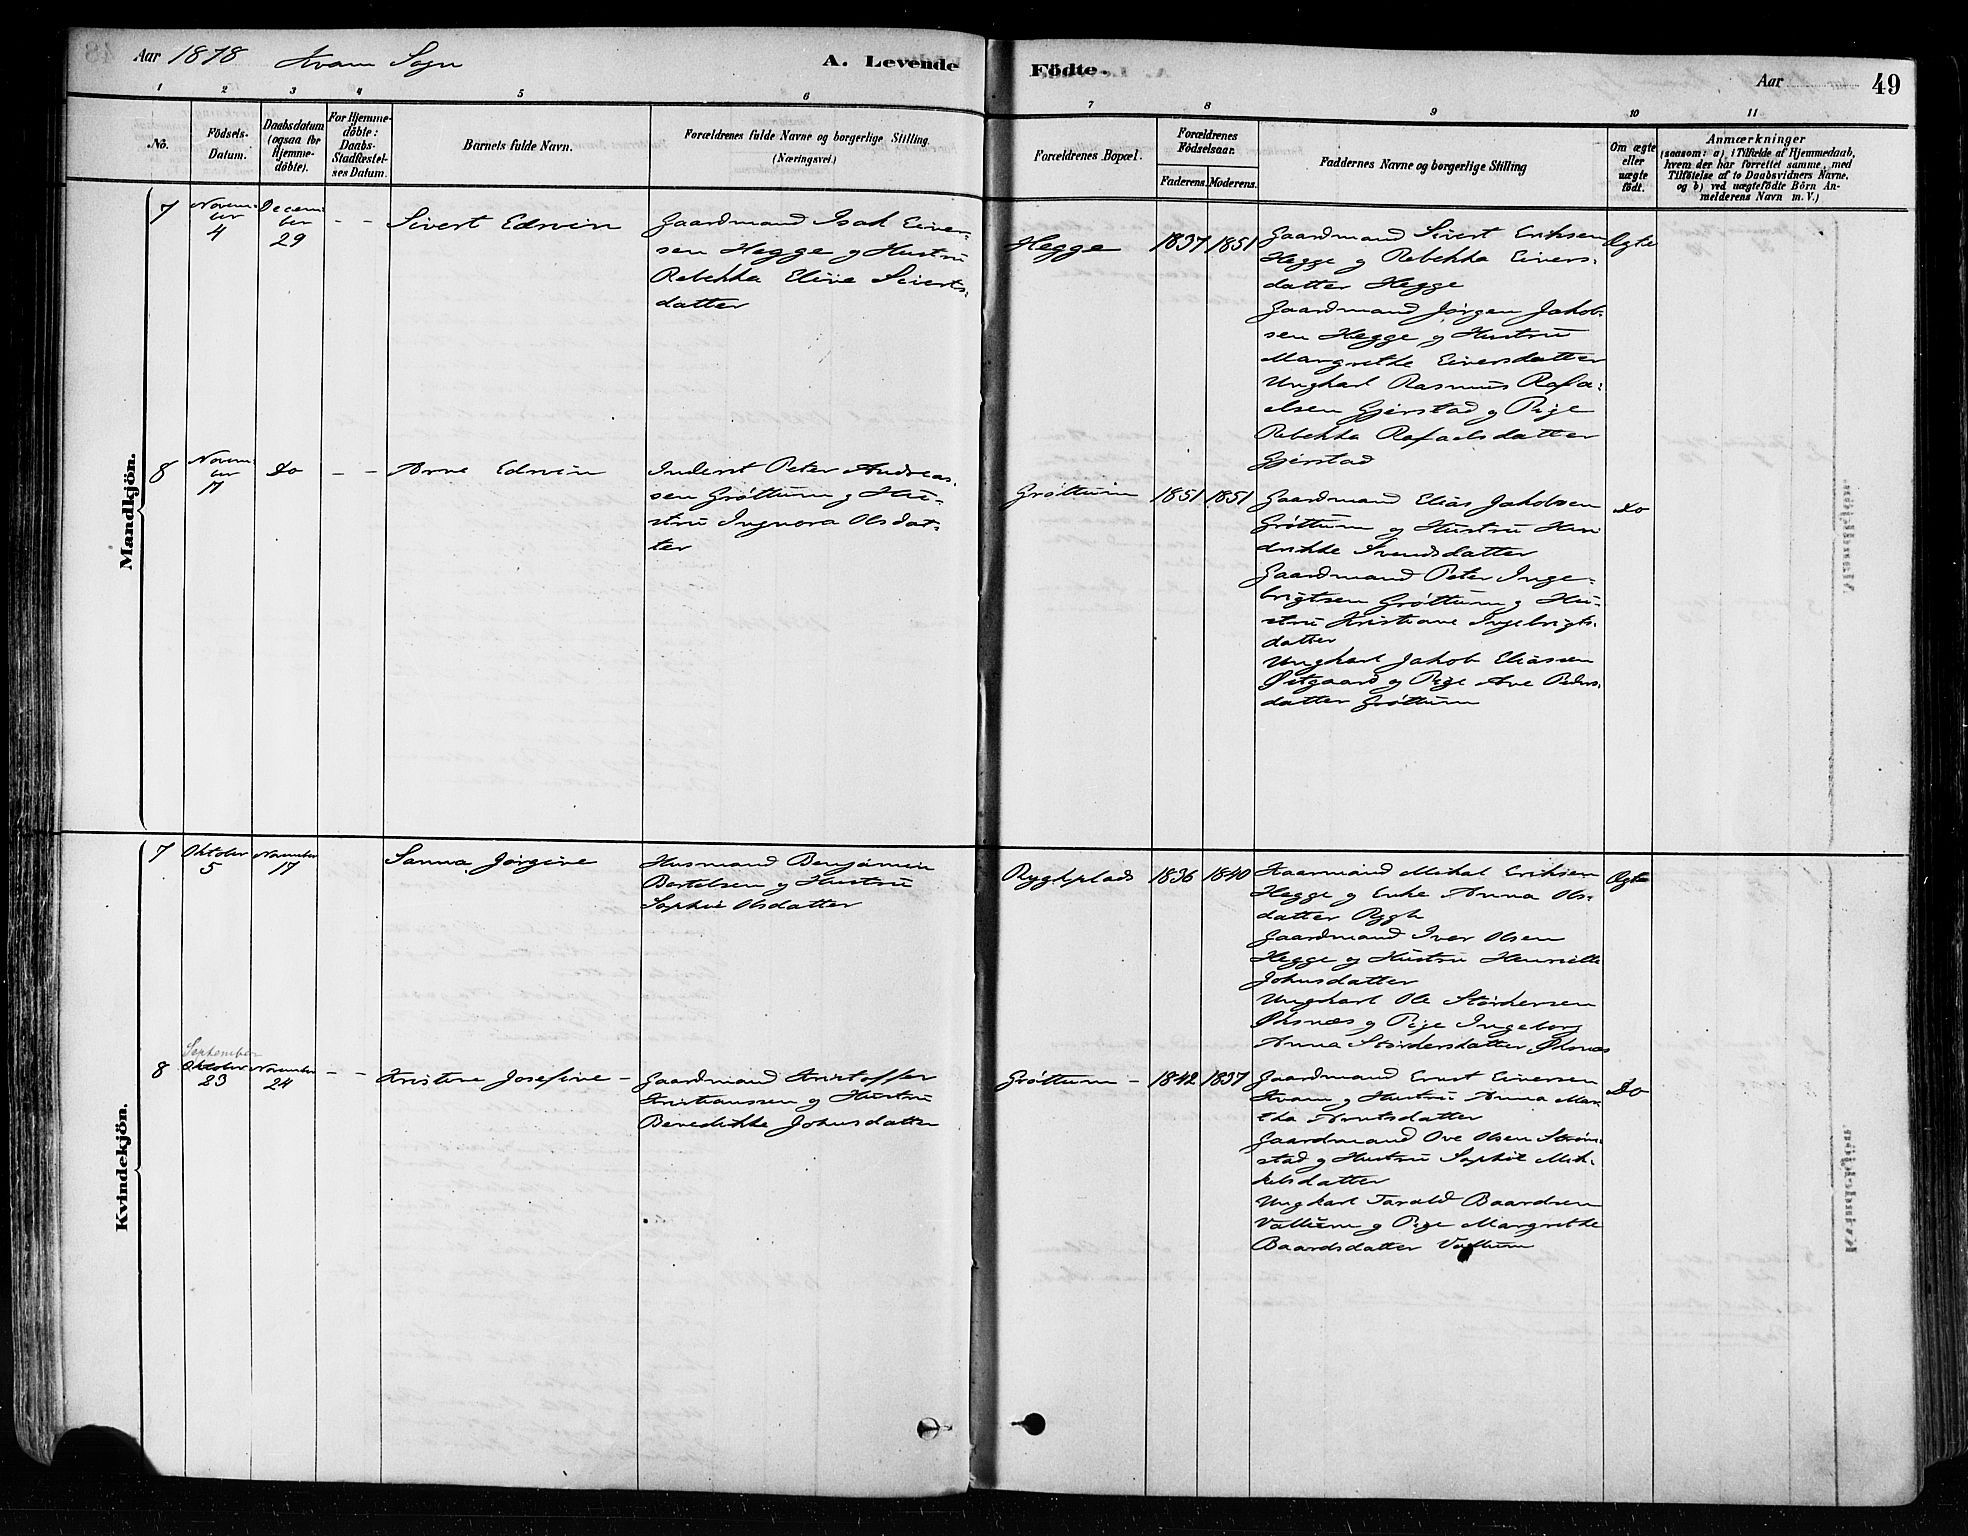 Aar 1878 Kvam Sogn
A. Levende
Födte.
Aar
49
1 2 3 4 5 6 7 8 9 10 11
No.
Födsels-
Datum.
Daabsdatum
(ogsaa for
Hjemme-
döbte).
For Hjemme-
döbte:
Daabs-
Stadfæstel-
ses Datum.
Barnets fulde Navn.
Forældrenes fulde Navne og borgerlige Stilling
(Næringsvei.)
Forældrenes Bopæl.
Forældrenes
Födselsaar.
Faderens. Moderens.
Faddernes Navne og borgerlige Stilling
Om ægte
eller
uægte
födt.
Anmærkninger
(saasom: a) i Tilfælde af Hjemmedaab,
hvem der har forrettet samme, med
Tilföielse af to Daabsvidners Navne,
og b) ved uægtefödte Börn An-
melderens Navn m. V.)
Mandkjön.
7
Novem-
ber
4
Decem-
ber
29
- -
Sivert Edvin
Gaardmand Isak Eiver-
sen Hegge og Hustru
Rebekka Eline Siverts-
datter
Hegge
1837 1851
Gaardmand Sivert Eriksen
Hegge og Rebekka Eivers-
datter Hegge
Gaardmand Jørgen Jakob-
sen Hegge og Hustru
Margrethe Eiversdatter
Ungkarl Rasmus Rafa-
elsen Gjerstad og Pige
Rebekka Rafaelsdatter
Gjerstad
Ægte
8
Novem-
ber
17
Do
- -
Arne Edvin
Inderst Peter Andreas-
sen Grøttum og Hu-
stru Ingvora Olsdat-
ter
Grøttum
1851 1851
Gaardmand Elias Jakobsen
Grøttum og Hustru Hen
drikke Svendsdatter
Gaardmand Peter Inge-
brigtsen Grøttum og Hu-
stru Kristiane Ingebrigts-
datter
Ungkarl Jakob Eliassen
Østgaard og Pige Ane Peders-
datter Grøttum
Do
Kvindekjön.
7
Oktober
5
November
17
Sanna Jørgine
Husmand Benjamin
Bertelsen og Hustru
Sophie Olsdatter
Ryghplads
1836 1840
Kaarmand Mikal Eriksen
Hegge og Enke Anna Ols-
datter Rygh
Gaardmand Iver Olsen
Hegge og Hustru Henriette
Johnsdatter
Ungkarl Ole Størkersen
Øksnæs og Pige Ingeborg
Anna Størkersdatter Øksnæs
Ægte
8
September
Oktober
23
November
24
- -
Kristine Josefine -
Gaardmand Kristoffer
Kristianssen og Hustru
Benedikke Johnsdatter
Grøttum -
1842 1837
Gaardmand Ernst Eiversen
Kvam og Hustru Anna Mar-
tha Arntsdatter
Gaardmand Ove Olsen Strøm-
stad og Hustru Sophie Mik-
kelsdatter
Ungkarl Tarald Baardsen
Vattum og Pige Margrethe
Baardsdatter Vattum
Do